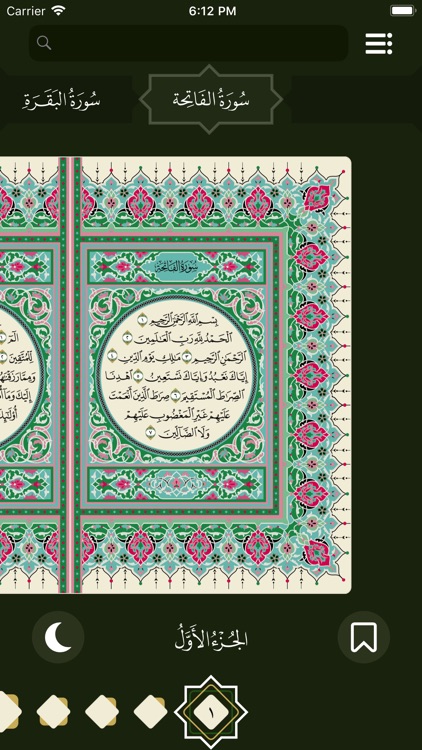 Carrier 6:12 PM
سُورَةُ الفَاتِحة
سُورَةُ البَقَـرَةِ
سُورَةُ الفَاتِحَة
بِسْمِ ٱللَّهِ ٱلرَّحْمَٰنِ ٱلرَّحِيمِ ١
ٱلْحَمْدُ لِلَّهِ رَبِّ ٱلْعَٰلَمِينَ ٢
ٱلرَّحْمَٰنِ ٱلرَّحِيمِ ٣ مَٰلِكِ يَوْمِ ٱلدِّينِ ٤
إِيَّاكَ نَعْبُدُ وَإِيَّاكَ نَسْتَعِينُ ٥ ٱهْدِنَا
ٱلصِّرَٰطَ ٱلْمُسْتَقِيمَ ٦ صِرَٰطَ ٱلَّذِينَ أَنْعَمْتَ
عَلَيْهِمْ غَيْرِ ٱلْمَغْضُوبِ عَلَيْهِمْ
وَلَا ٱلضَّآلِّينَ ٧
لِّلْمُتَّقِينَ
إِلَيْكَ وَمَآ
الجُـزْءُ الأَوَّلُ
١